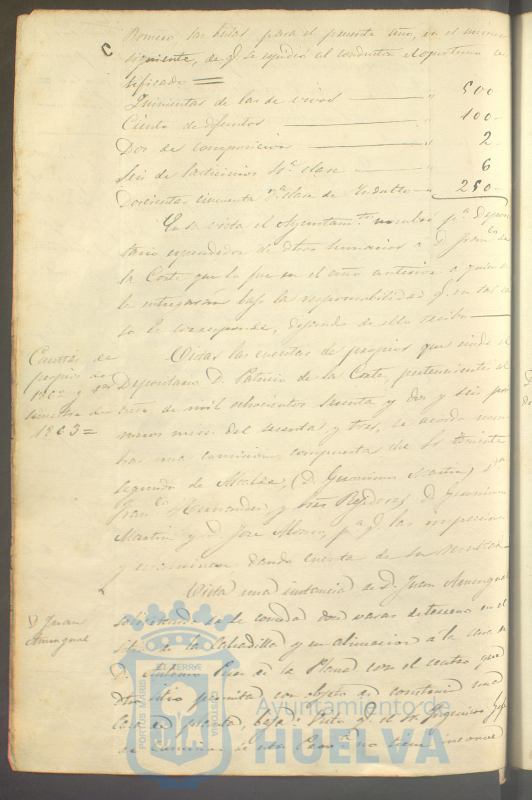 C
Romero las bulas para el presente año, en el número
siguiente, de q.e se espidió al conductor el oportuno
tificado =
Quinientas de las de vivos 500
Ciento de difuntos 100
Dos de composicion 2
Seis de lacticinios 4.a clase 6
Doscientas cincuenta 3.a clase de Indulto 250
En su vista el Ayuntam.to nombró p.a
tario espendedor de dhos Sumarios a D. Fran.co de
la Corte que lo fue en el año anterior a quien
le entregarán bajo la responsabilidad q. en tal
to le corresponde, dejando de ello recibo
Cuentas de
propios de
1862 y 1er
simestre de
1863=
Vistas las cuentas de propios que rinde el
Depositario D. Patricio de la Corte, pertenecientes al
año de mil ochocientos sesenta y dos y seis pri
meros meses del sesenta y tres, se acordó nom
brar una comision compuesta de los teniente
segundo de Alcalde, (D. Geronimo Martin) D.
Fran.co Hernandez, y Sres Regidores D. Geronimo
Martin y D. Jose Alonso, p.a q. las inspeccionen
y examinen dando cuenta de su resultado
D. Juan
Amengual
Vista una instancia de D. Juan Amengual
solicitando se le conceda dos varas de terreno en el
sitio de la Calzadilla y en alineacion a la casa de
D. Antonio de la Plana con el centro que
dho sitio permita con objeto de construir una
casa de puerta, baja: Visto q. el Sr. Ingeniero Gefe
de Caminos de esta Prov.a no tiene
PORTUS MARIS ET TERRAE CUSTODIA
Ayuntamiento de
HUELVA